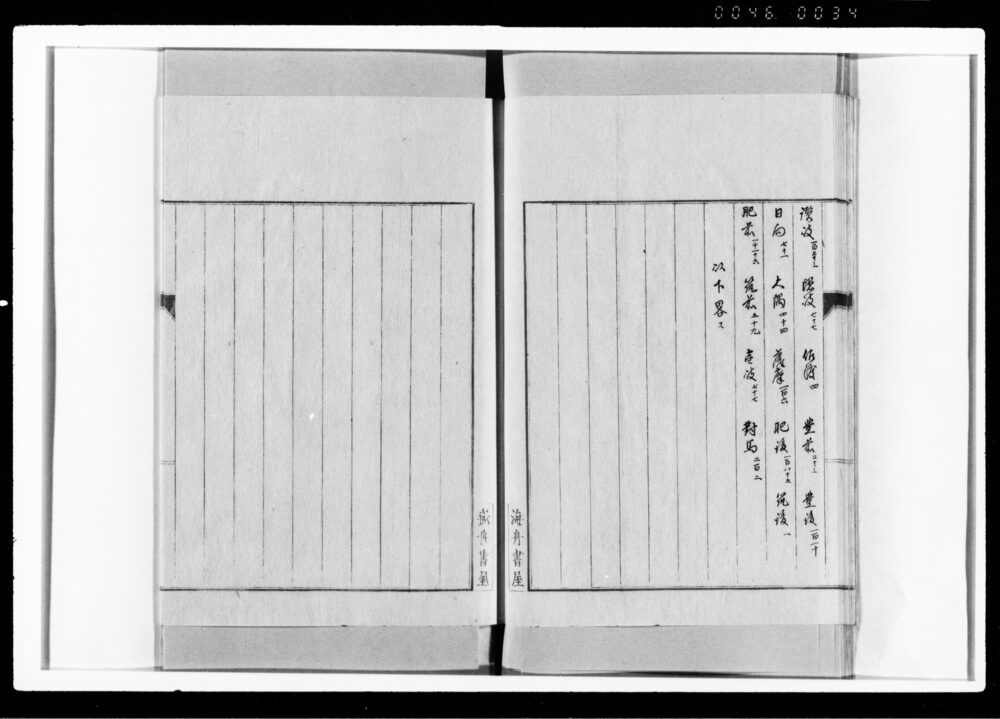 0046 0034
讃岐 隠岐七十七 佐渡四 豊前二十一 豊後一百一十
日向七十一 大隅四十四 薩摩一百六 肥後一百八十五 筑後一
肥前 筑前五十九 壱岐七十七 對馬二百二
以下畧ス
海舟書屋
海舟書屋